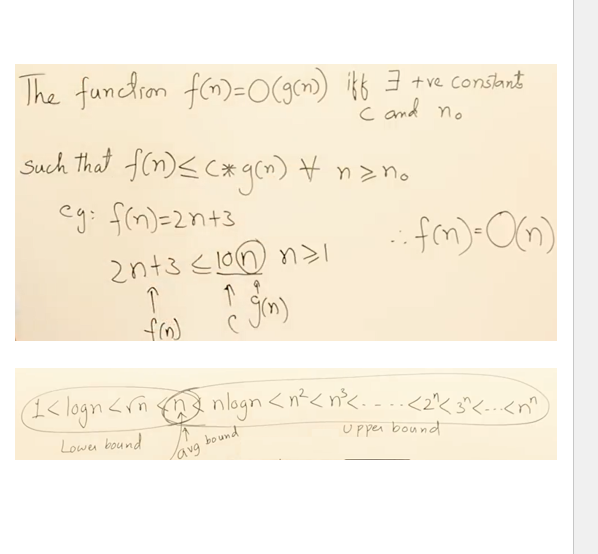 The function f(n)=O(g(n)) iff ∃ +ve constants
c and n₀
such that f(n) ≤ c*g(n) ∀ n ≥ n₀
eg: f(n)=2n+3
∴ f(n)=O(n)
2n+3 ≤ 10n n≥1
↑ ↑ ↑
f(n) c g(n)
1 < logn < √n < n < nlogn < n² < n³ < ..... < 2ⁿ < 3ⁿ < ... < nⁿ
Lower bound avg bound upper bound